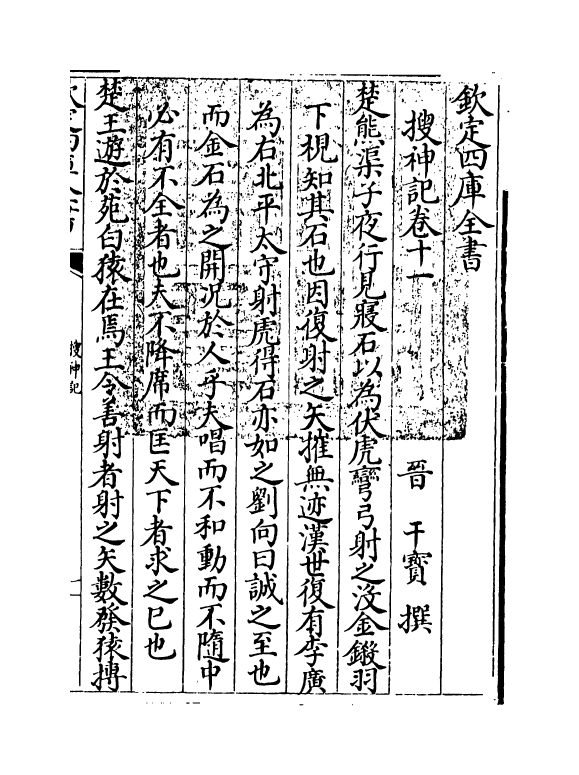 欽定四庫全書
搜神記卷十一
晉 干寶 撰
楚熊渠子夜行見寢石以為伏虎彎弓射之没金鎩羽
下視知其石也因復射之矢摧無迹漢世復有李廣
為右北平太守射虎得石亦如之劉向曰誠之至也
而金石為之開況於人乎夫唱而不和動而不隨中
必有不全者也夫不降席而匡天下者求之已也
楚王遊於苑白猿在焉王令善射者射之矢數發猿搏
搜神記